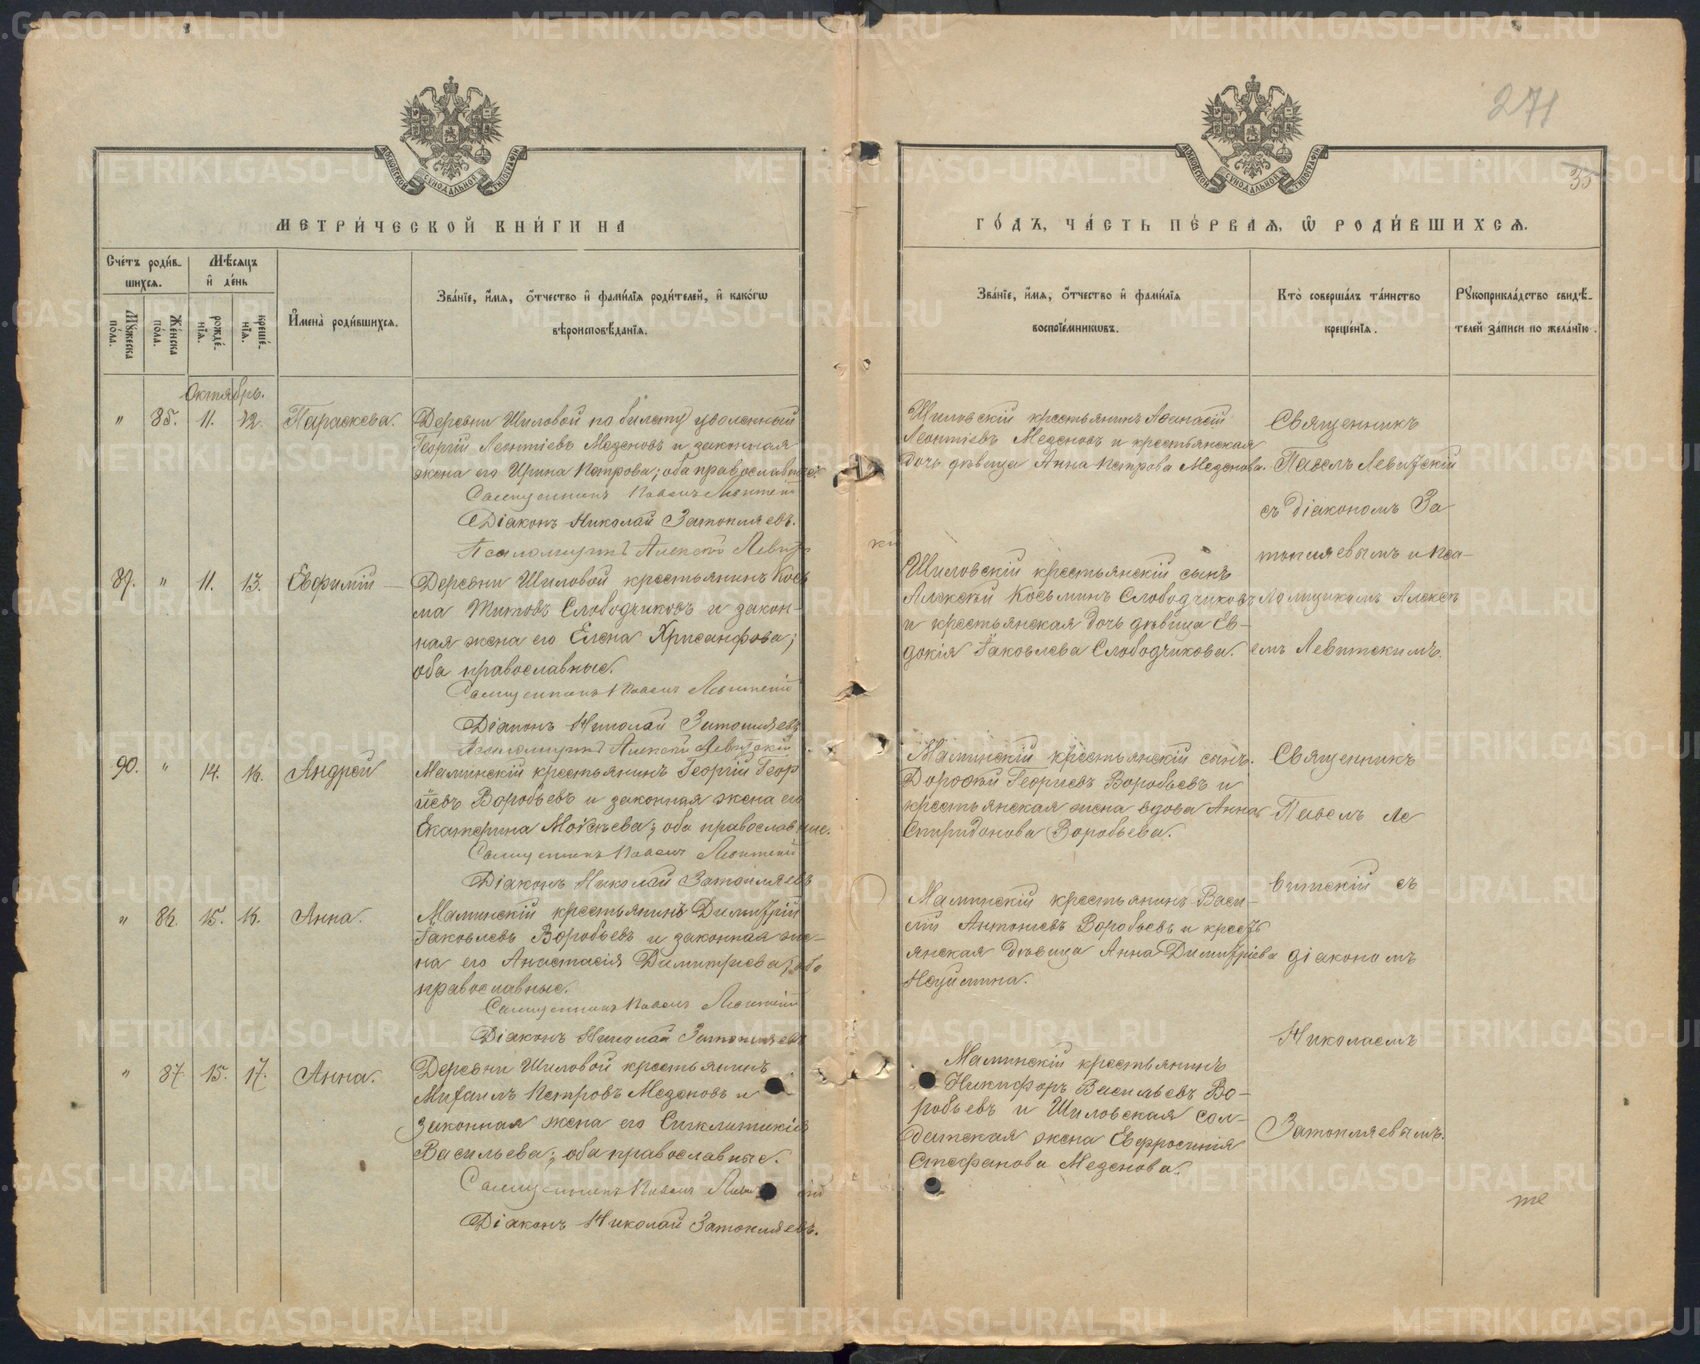 271
35
МЕТРИ́ЧЕСКОЙ КНИ́ГИ НА
ГО́ДЪ, ЧА́СТЬ ПЕ́РВАѦ, Ѽ РОДИ́ВШИХСѦ.
Сче́тъ роди́в-
шихсѧ.
Мѣ́сѧцъ
и҆ де́нь
Мꙋжеска
по́ла.
Же́нска
по́ла.
рожде́-
нїѧ.
креще́-
нїѧ.
И҆мена̀ роди́вшихсѧ.
Зва́нїе, и҆́мѧ, ѻ҆́тчество и҆ фами́лїѧ роди́телей, и҆ како́гѡ
вѣроисповѣ́данїѧ.
Зва́нїе, и҆́мѧ, ѻ҆́тчество и҆ фами́лїѧ
воспрїе́мникѡвъ.
Кто̀ соверша́лъ та́инство
креще́нїѧ.
Рꙋкоприкла́дство свидѣ́-
телей за́писи по жела́нїю.
Октябрь.
" 85. 11. 12. Параскева.
Деревни Шиловой по билету уволенный
Георгій Леонтіевъ Мезеновъ и законная
жена его Ирина Петрова; оба православные.
Священникъ Павелъ Левитскій
Діаконъ Николай Затопляевъ.
Псаломщикъ Алексѣй Левитскій
Шиловскій крестьянинъ Аѳанасій
Леонтіевъ Мезеновъ и крестьянская
дочь дѣвица Анна Петрова Мезенова.
Священникъ
Павелъ Левитскій
съ діакономъ За
топляевымъ и Пса-
ломщикомъ Алексѣ
емъ Левитскимъ.
89. " 11. 13. Евфимій
Деревни Шиловой крестьянинъ Кось
ма Титовъ Слободчиковъ и закон-
ная жена его Елена Хрисанфова;
оба православные.
Священникъ Павелъ Левитскій
Діаконъ Николай Затопляевъ
Псаломщикъ Алексѣй Левитскій
Шиловскій крестьянскій сынъ
Алексѣй Косьминъ Слободчиковъ
и крестьянская дочь дѣвица Ев-
докія Іаковлева Слободчикова.
90. " 14. 16. Андрей
Маминскій крестьянинъ Георгій Геор
гіевъ Воробьевъ и законная жена его
Екатерина Моисѣева; оба православные.
Священникъ Павелъ Левитскій
Діаконъ Николай Затопляевъ
Маминскій крестьянскій сынъ
Дороѳей Георгіевъ Воробьевъ и
крестьянская жена вдова Анна
Спиридонова Воробьева.
Священникъ
Павелъ Ле
витскій съ
діакономъ
Николаемъ
Затопляевымъ.
" 86. 15. 16. Анна.
Маминскій крестьянинъ Димитрій
Іаковлевъ Воробьевъ и законная же-
на его Анастасія Димитріева; оба
православные.
Священникъ Павелъ Левитскій
Діаконъ Николай Затопляевъ
Маминскій крестьянинъ Васи-
лій Антоніевъ Воробьевъ и кресть
янская дѣвица Анна Димитріева
" 87 15. 17. Анна.
Деревни Шиловой крестьянинъ
Михаилъ Петровъ Мезеновъ и
законная жена его Сигклитикія
Васильева; оба православные.
Священникъ Павелъ Левитскій
Діаконъ Николай Затопляевъ.
Маминскій крестьянинъ
Никифоръ Васильевъ Во-
робьевъ и Шиловская сол-
датская жена Евфросинія
Стефанова Мезенова.
METRIKI.GASO-URAL.RU